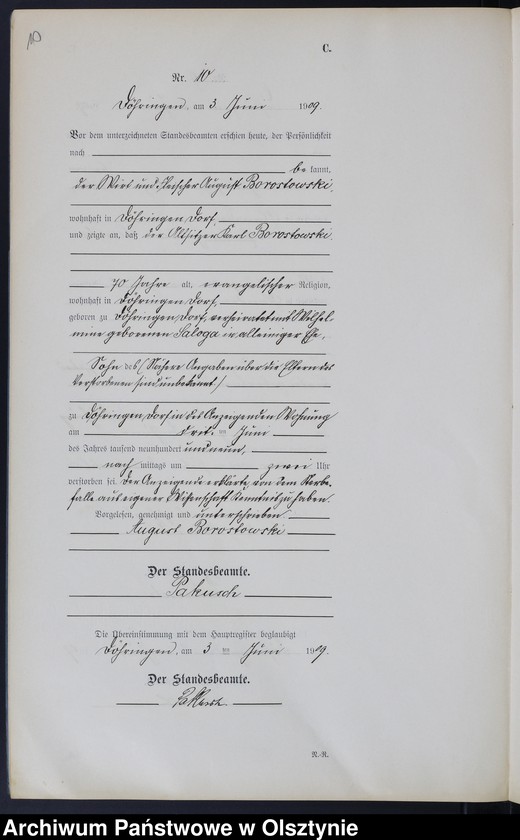 10
C.
Nr. 10
Döhringen, am 3 Juni 1909.
Vor dem unterzeichneten Standesbeamten erschien heute, der Persönlichkeit
nach
be kannt,
der Wirt und Fleischer August Borostowski,
wohnhaft in Döhringen Dorf,
und zeigte an, daß der Altsitzer Karl Borostowski
70 Jahre alt, evangelischer Religion,
wohnhaft in Döhringen Dorf,
geboren zu Döhringen Dorf, verheiratet mit Wilhel-
mine geborenen Saloga in alleiniger Ehe,
Sohn des (Nähere Angaben über die Eltern des
Verstorbenen sind unbekannt)
zu Döhringen Dorf in des Anzeigenden Wohnung
am drei ten Juni
des Jahres tausend neunhundert und neun,
nach mittags um zwei Uhr
verstorben sei. Der Anzeigende erklärte, von dem Sterbe-
falle aus eigener Wissenschaft Kenntnis zu haben.
Vorgelesen, genehmigt und unterschrieben
August Borostowski
Der Standesbeamte.
Pakusch
Die Übereinstimmung mit dem Hauptregister beglaubigt
Döhringen, am 3 ten Juni 1909.
Der Standesbeamte.
Pakusch
N.-R.
Archiwum Państwowe w Olsztynie